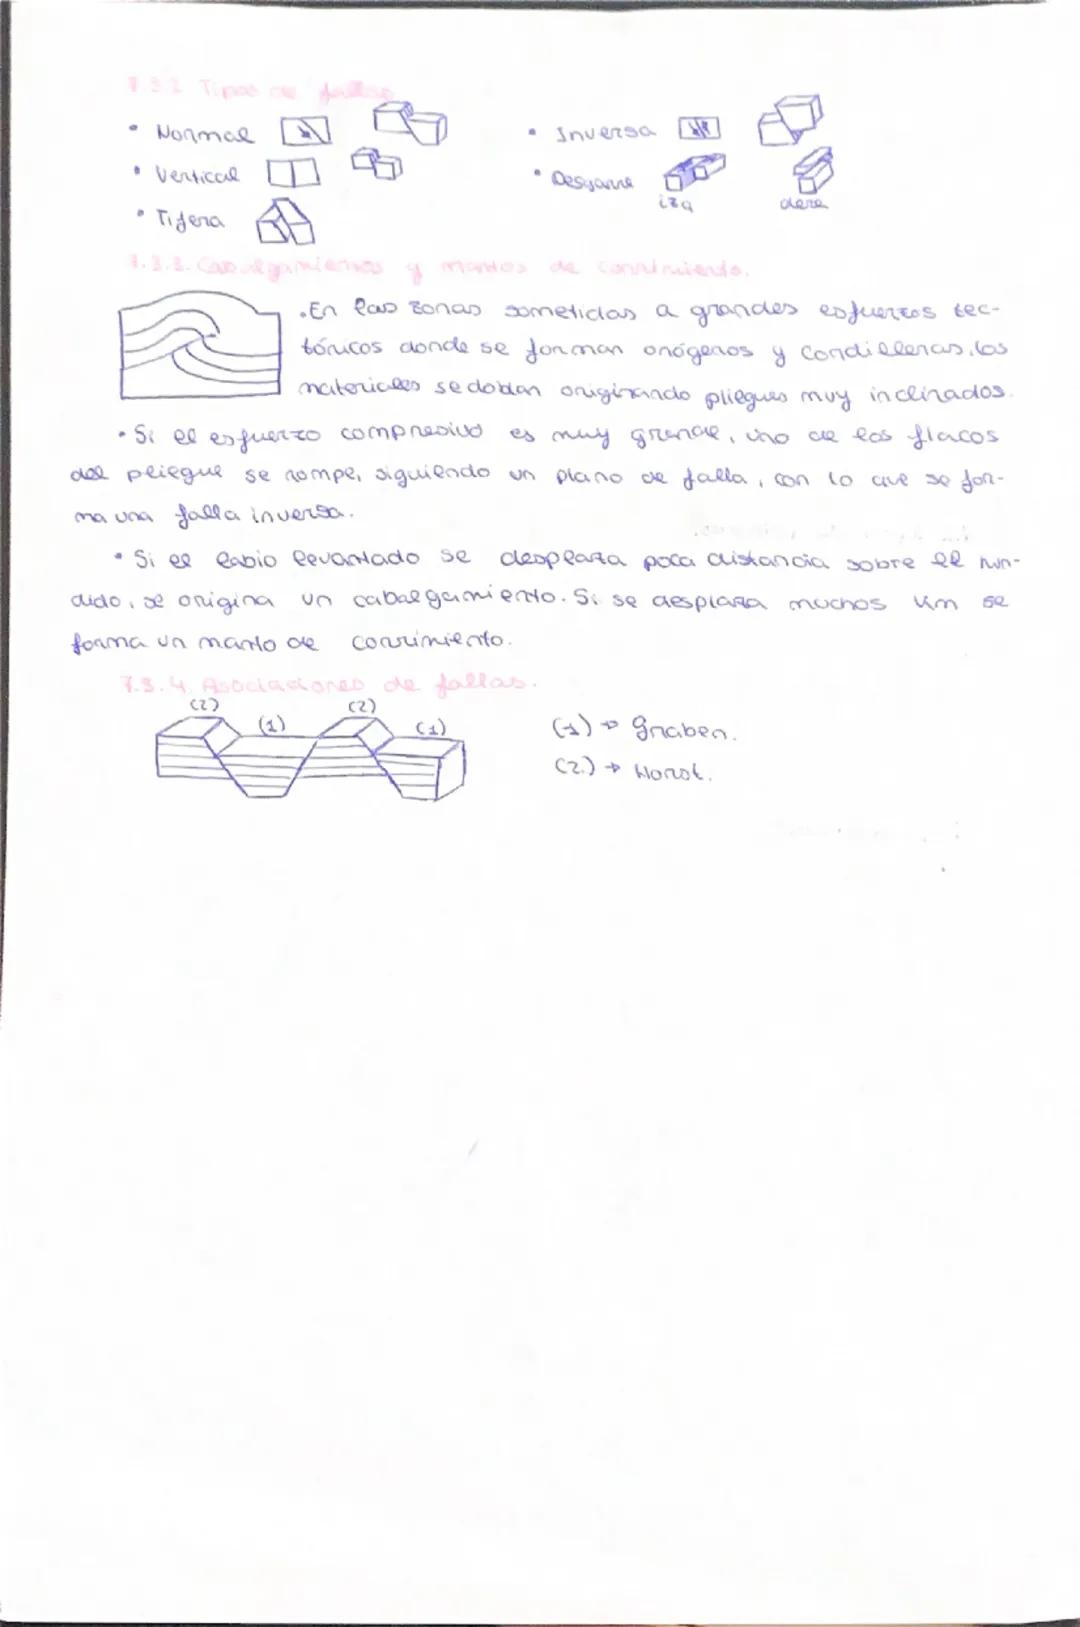 7.3.2 Tipos de fallas
• Normal
• Inversa
• Vertical
• Desgarre
izq
derc
• Tijera
7.3.3. Cabalgamientos y mantos de corrimiento.
• En las zonas sometidas a grandes esfuerzos tec-
tónicos donde se forman orógenos y cordilleras, los
materiales se doblan originando pliegues muy inclinados.
• Si el esfuerzo compresivo es muy grande, uno de los flacos
del pliegue se rompe, siguiendo un plano de falla, con lo que se for-
ma una falla inversa.
• Si el labio levantado se desplaza poca distancia sobre el hun-
dido, se origina un cabalgamiento. Si se desplaza muchos km se
forma un manto de corrimiento.
7.3.4. Asociaciones de fallas.
(2) (1) (2) (1)
(1) → Graben.
(2) → Horst.